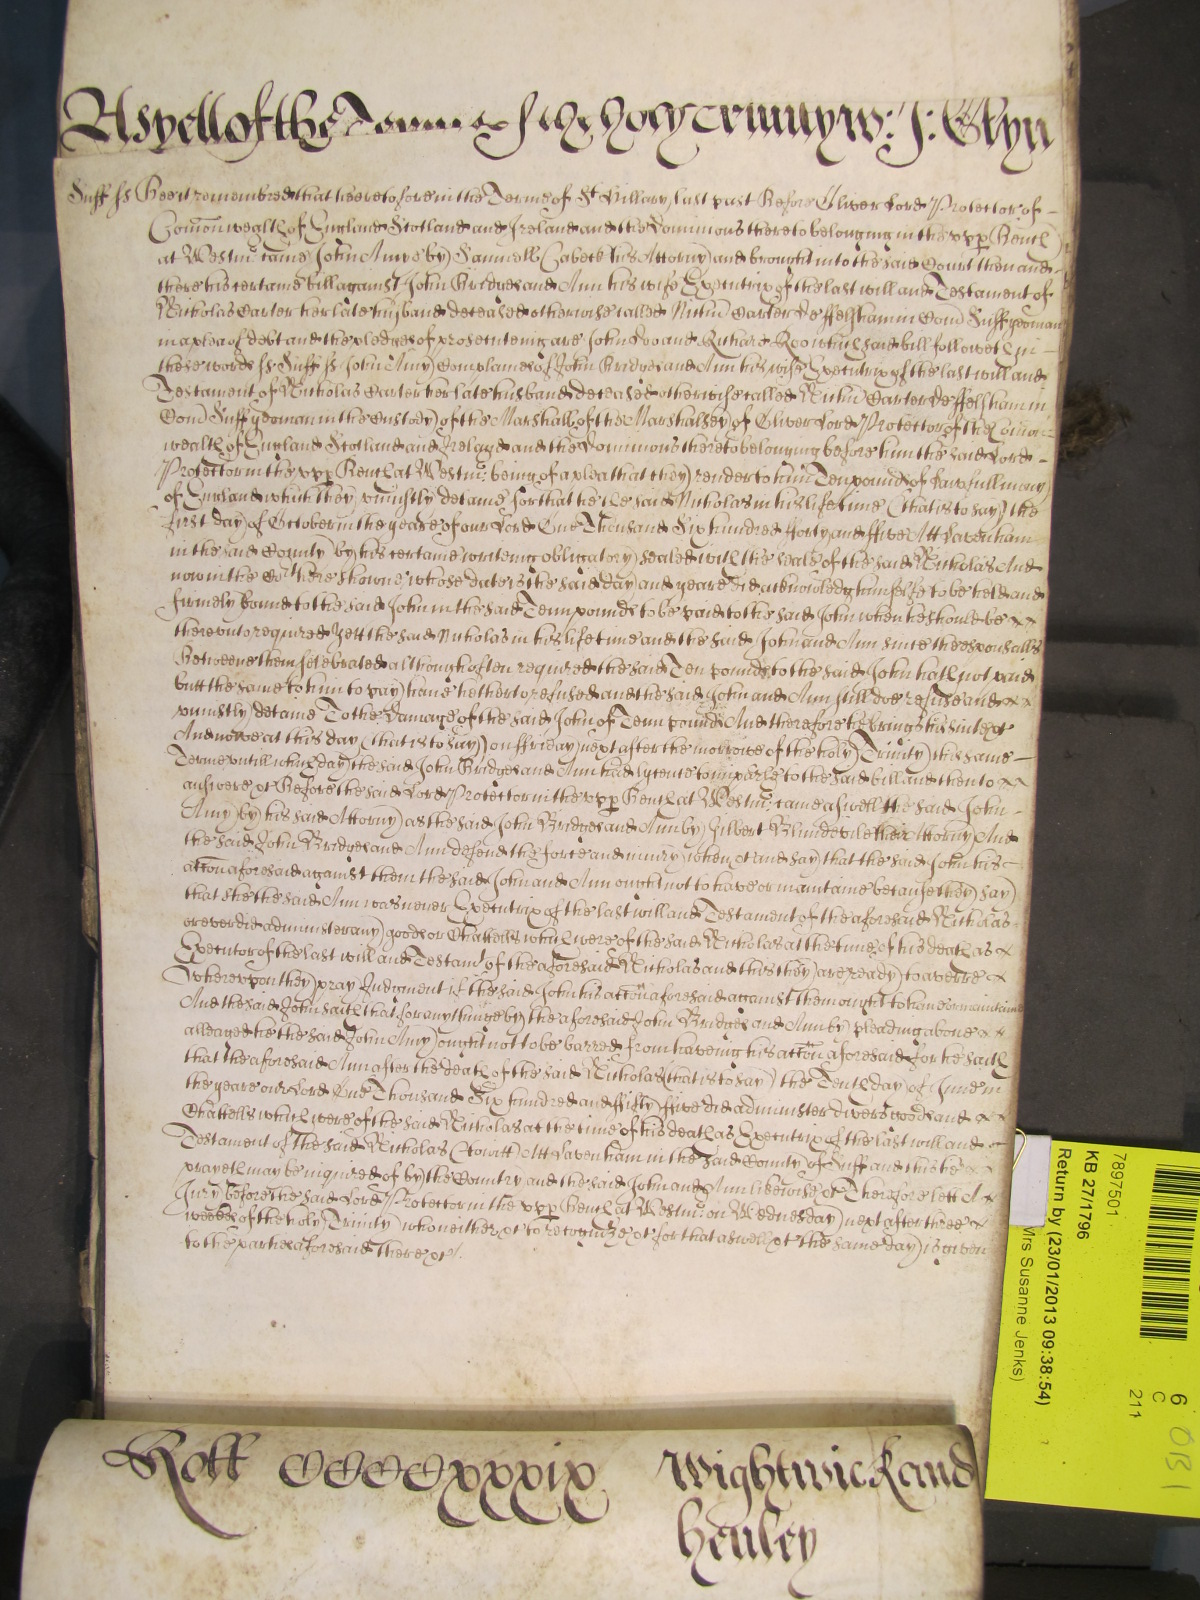 As yett of the Terme of the holy Trinity w: J: Glyn
Suff ss Bee it remembred that heretofore in the Terme of St Hillary last past Before Oliver Lord Protector of
Com̄onwealth of England Scotland and Ireland and the Dominions thereto belonging in the vpp Bench
at Westm̄ came John Amye by Samuell Cabeck his Attorny and brought into the said Court then and
there his certaine bill against John Bridges and Ann his wife Executrix of the last will and Testament of
Nicholas Carter her late husband deceased otherwise called Nichū Carter de Felsham in Com̄ Suff yeoman
in a plea of debt and the pledges of prosecuteing are John Doo and Richard Roo which said bill followeth in
these words ss Suff ss John Amy Complaines of John Bridges and Ann his wife Executrix of the last will and
Testament of Nicholas Carter her late husband deceased otherwise called Nichū Carter de ffelsham in
Com̄ Suff yeoman in the Custody of the Marshall of the Marshalsey of Oliver Lord Protector of the Com̄on
wealth of England Scotland and Ireland and the Dominions thereto belonging before him the said Lord
Protector in the vpp Bench at Westm̄: being of a plea that they render to him Tenn pounds of lawfull mony
of England which they uniustly detaine for that he the said Nicholas in his life time (that is to say) the
first day of October in the yeare of our Lord One Thousand Six hundred fforty and ffive Att Lavenham
in the said County by his certaine writeing obligatory sealed with the seale of the said Nicholas And
now in the Cort here showne whose date is the said day and yeare did acknowledg himselfe to be held and
firmely bound to the said John in the said Tenn pounds to be paid to the said John when he should be
therevnto required Yett the said Nicholas in his life time and the said John and Ann since the espousalls
Betweene them celebrated although often required the said Ten pounds to the said John hath not paid
butt the same to him to pay have hetherto refused and the said John and Ann still doe refuse and
uniustly detaine To the Damage of the said John of Tenn pounds And therefore he brings his suite &c
And nowe at this day (that is to say) on ffriday next after the morrowe of the holy Trinity this same
Terme vntill which day the said John Bridges and Ann had lycence to imparle to the said bill and then to
answere &c Before the said Lord Protector in the vpp Bench at Westm̄: came aswell the said John
Amy by his said Attorny as the said John Bridges and Ann by Gilbert Blundevile their Attorny And
the said John Bridges and Ann defend the force and iniury when &c and say that the said John his
acc̄on aforesaid against them the said John and Ann ought not to have or maintaine because they say
that she the said Ann was never Executrix of the last will and Testament of the aforesaid Nicholas
or ever did administer any goods or Chattells which were of the said Nicholas at the time of his death as
Executor of the last will and Testamt of the aforesaid Nicholas and this they are ready to averre
Wherevpon they pray Judgment if the said John his acc̄on aforesaid against them ought to have or maintaine
And the said John saith that for any thinge by the aforesaid John Bridges and Ann by pleading above
alleaged he the said John Amy ought not to be barred from haveing his acc̄on aforesaid for he saith
that the aforesaid Ann after the death of the said Nicholas (that is to say) the Tenth day of June in
the yeare our Lord One Thousand Six hundred and ffifty ffive did administer divers goods and
Chattells which were of the said Nicholas at the time of his death as Executrix of the last will and
Testament of the said Nicholas (to witt) Att Lavenham in the said County of Suff and this he
prayeth may be inquired of by the Country and the said John and Ann likewise &c Therefore lett A
Jury before the said Lord Protector in the vpp Bench at Westm̄: on Wednesday next after three
weekes of the holy Trinity who neither &c to recognize &c for that aswell &c the same day is given
to the parties aforesaid there &c.
Roll CCCCxxxix Wightwick and
Henley
7897501
KB 27/1796
Return by (23/01/2013 09:38:54)
Mrs Susanne Jenks)
6
C
211